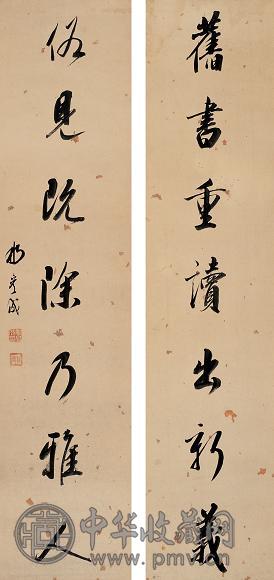 舊書重讀出新義
俗見既除乃雅人
中华收藏网
www.pmv.cn